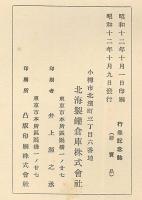 昭和十二年十月一日印刷
昭和十二年十月九日發行
行幸記念誌
(非賣品)
小樽市北濱町三丁目六番地
北海製罐倉庫株式會社
東京市本所區厩橋一ノ廿七
印刷者 井上源之丞
東京市本所區厩橋一ノ廿七
印刷所 凸版印刷株式會社